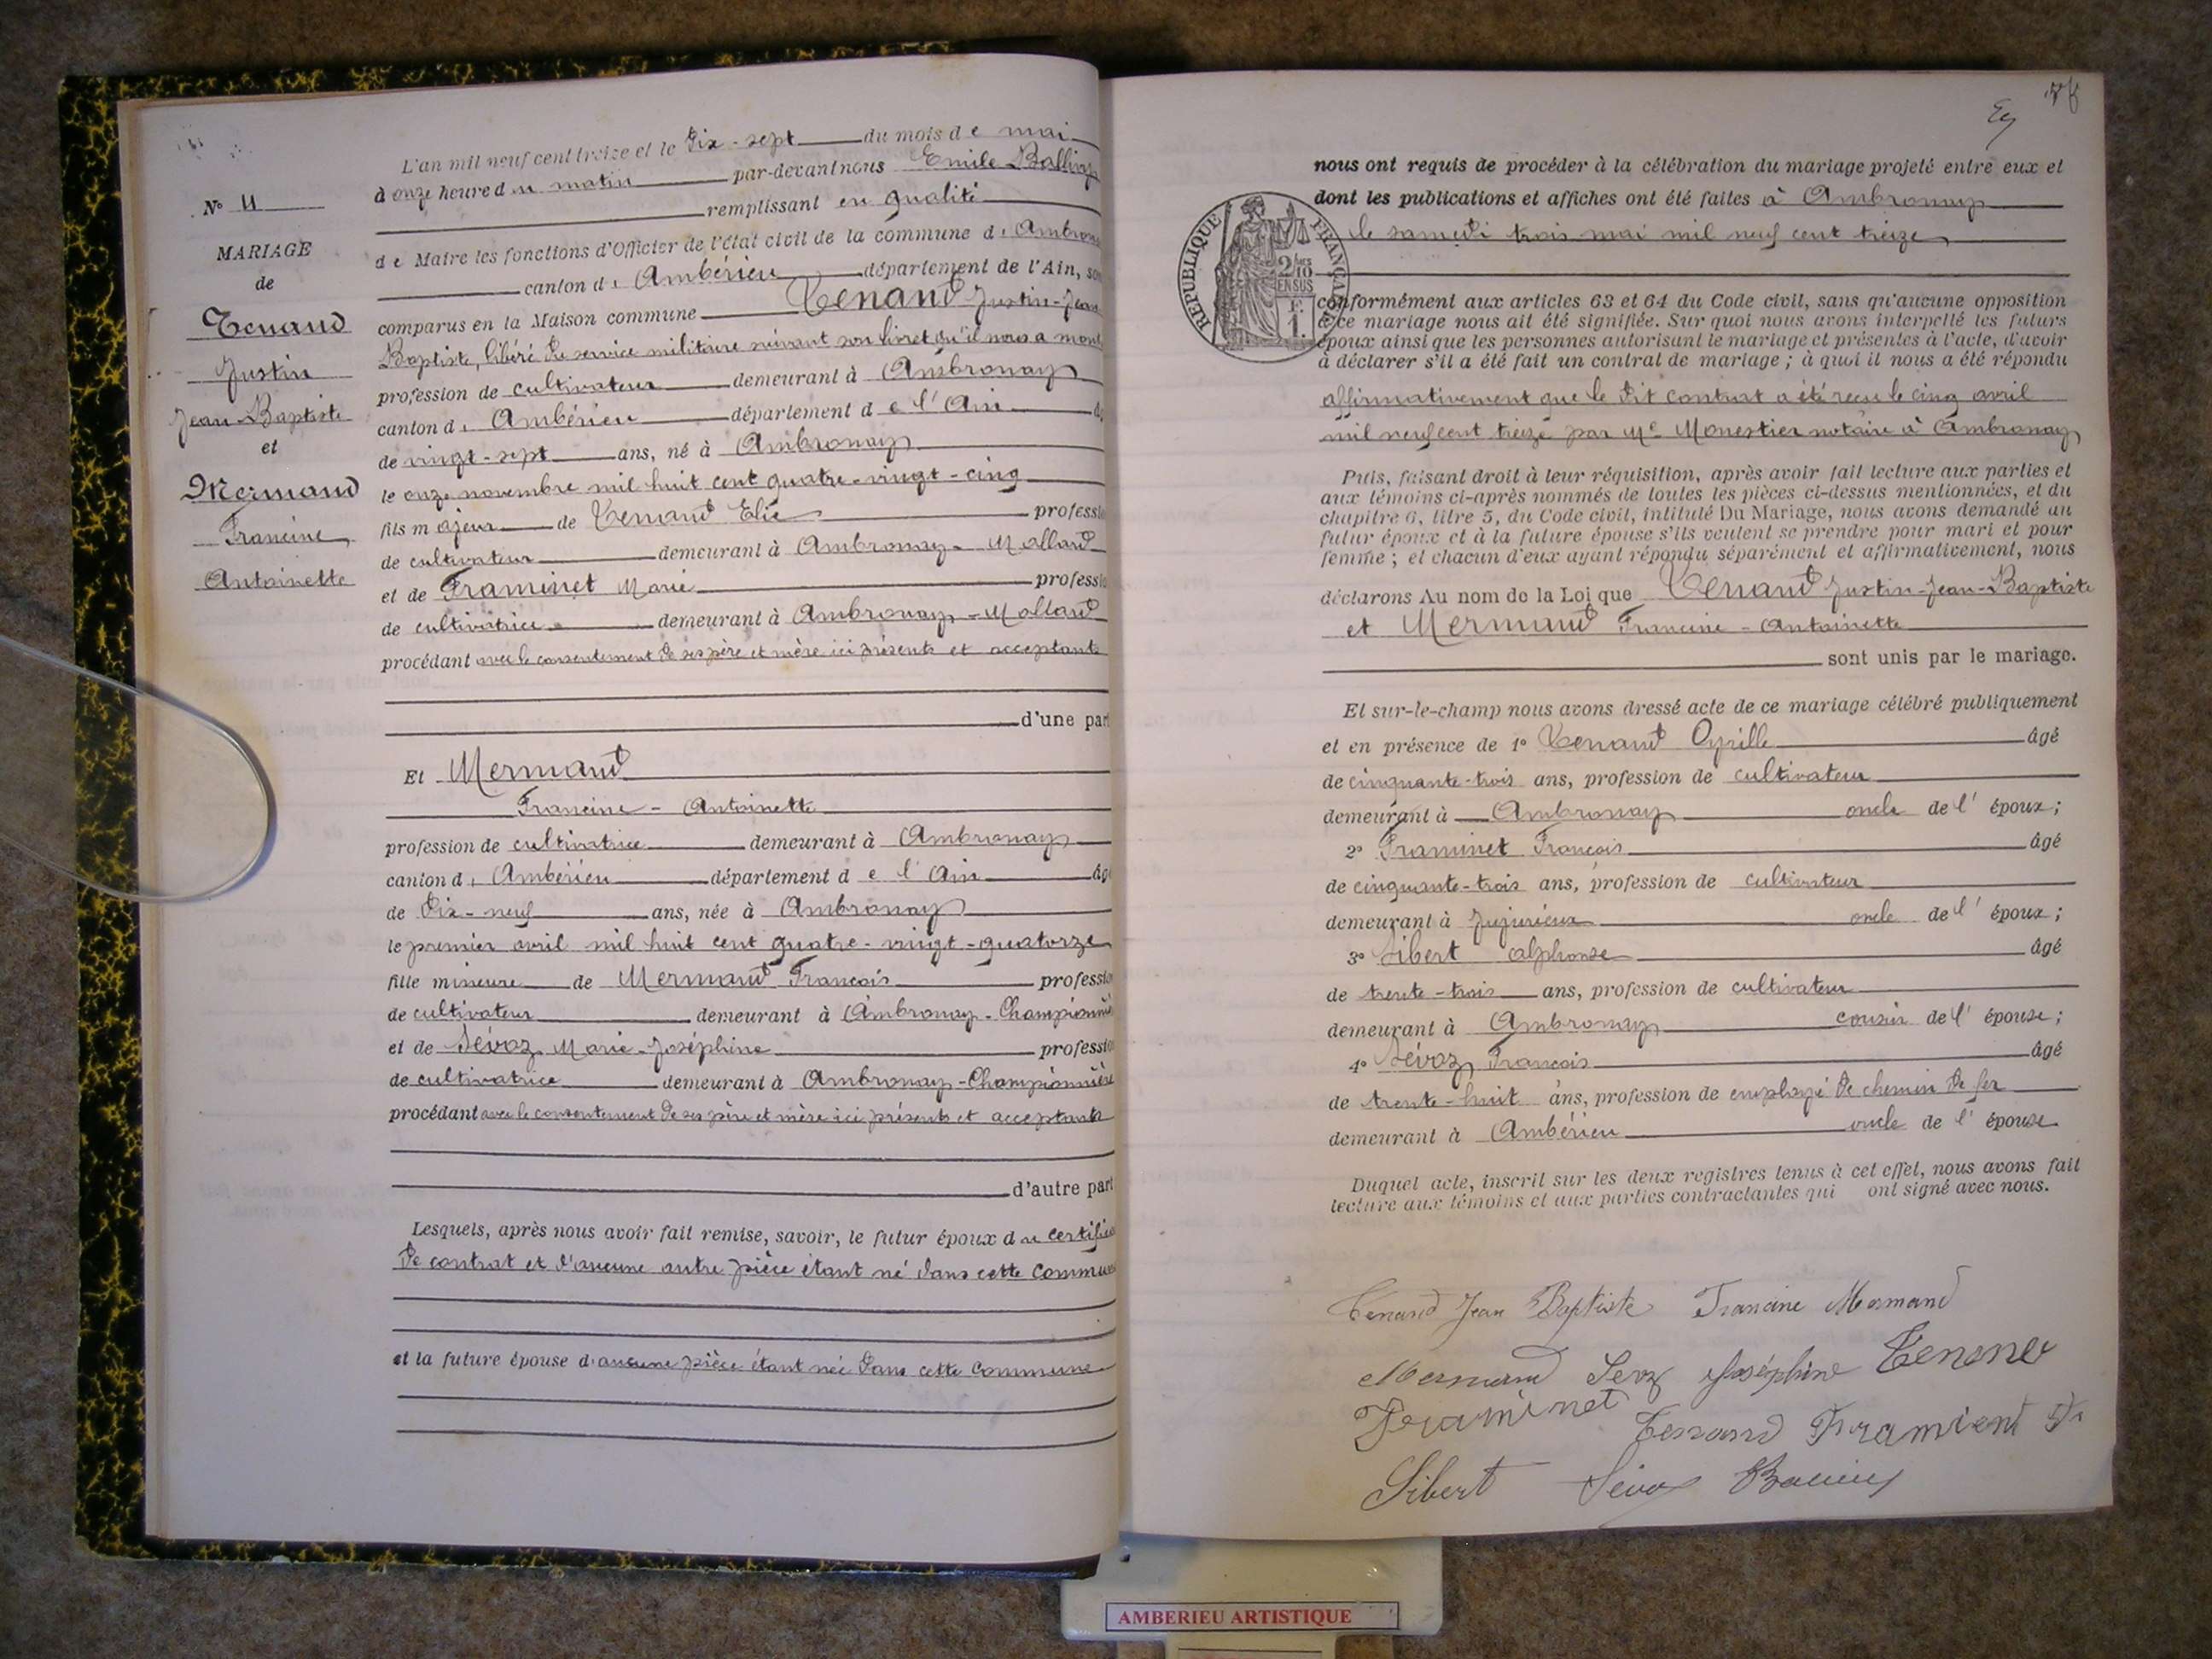 L'an mil neuf cent treize et le dix-sept du mois de mai
à onze heure du matin par-devant nous Emile
remplissant en qualité
de Maire les fonctions d'Officier de l'état civil de la commune d'
canton d' Ambérieu département de l'Ain,
comparus en la Maison commune Tenand Justin-Jean
Baptiste, libéré du service militaire suivant son livret qu'il nous a
profession de cultivateur demeurant à Ambronay
canton d' Ambérieu département de l'Ain
de vingt-sept ans, né à Ambronay
le onze novembre mil huit cent quatre-vingt-cinq
fils majeur de Tenand Elie
de cultivateur demeurant à Ambronay-Mollard
et de Framinet Marie
de cultivatrice demeurant à Ambronay-Mollard
procédant avec le consentement de ses père et mère ici présents et acceptants
d'une part
N° 11
MARIAGE
de
Tenand
Justin
Jean-Baptiste
et
Mermand
Francine
Antoinette
Et Mermand
Francine-Antoinette
profession de cultivatrice demeurant à Ambronay
canton d' Ambérieu département de l'Ain
de dix-neuf ans, née à Ambronay
le premier avril mil huit cent quatre-vingt-quatorze
fille mineure de Mermand François
de cultivateur demeurant à Ambronay-
et de Sévoz Marie-Joséphine
de cultivatrice demeurant à Ambronay-Championnière
procédant avec le consentement de ses père et mère ici présents et acceptants
d'autre part
Lesquels, après nous avoir fait remise, savoir, le futur époux du
de contrat et d'aucune autre pièce étant né dans cette
et la future épouse d'aucune pièce étant née dans cette commune
nous ont requis de procéder à la célébration du mariage projeté entre eux et
dont les publications et affiches ont été faites à Ambronay
le samedi trois mai mil neuf cent treize
REPUBLIQUE FRANÇAISE
2/10 EN SUS
conformément aux articles 63 et 64 du Code civil, sans qu'aucune opposition
à ce mariage nous ait été signifiée. Sur quoi nous avons interpellé les futurs
époux ainsi que les personnes autorisant le mariage et présentes à l'acte, d'avoir
à déclarer s'il a été fait un contrat de mariage ; à quoi il nous a été répondu
affirmativement que le dit contrat a été reçu le cinq avril
mil neuf cent treize par Me Monestier notaire à Ambronay
Puis, faisant droit à leur réquisition, après avoir fait lecture aux parties et
aux témoins ci-après nommés de toutes les pièces ci-dessus mentionnées, et du
chapitre 6, titre 5, du Code civil, intitulé Du Mariage, nous avons demandé au
futur époux et à la future épouse s'ils veulent se prendre pour mari et pour
femme ; et chacun d'eux ayant répondu séparément et affirmativement, nous
déclarons Au nom de la Loi que Tenand Justin-Jean-Baptiste
et Mermand Francine-Antoinette
sont unis par le mariage.
Et sur-le-champ nous avons dressé acte de ce mariage célébré publiquement
et en présence de 1° Tenand Cyrille âgé
de cinquante-trois ans, profession de cultivateur
demeurant à Ambronay oncle de l'époux ;
2° Framinet François âgé
de cinquante-trois ans, profession de cultivateur
demeurant à Jujurieux oncle de l'époux ;
3° Sibert Alphonse âgé
de trente-trois ans, profession de cultivateur
demeurant à Ambronay cousin de l'épouse ;
4° Sévoz François âgé
de trente-huit ans, profession de employé de chemin de fer
demeurant à Ambérieu oncle de l'épouse
Duquel acte, inscrit sur les deux registres tenus à cet effet, nous avons fait
lecture aux témoins et aux parties contractantes qui ont signé avec nous.
Tenand Jean Baptiste Francine Mermand
Mermand Sevoz Joséphine
Framinet Tenand
Sibert Sévoz
AMBERIEU ARTISTIQUE